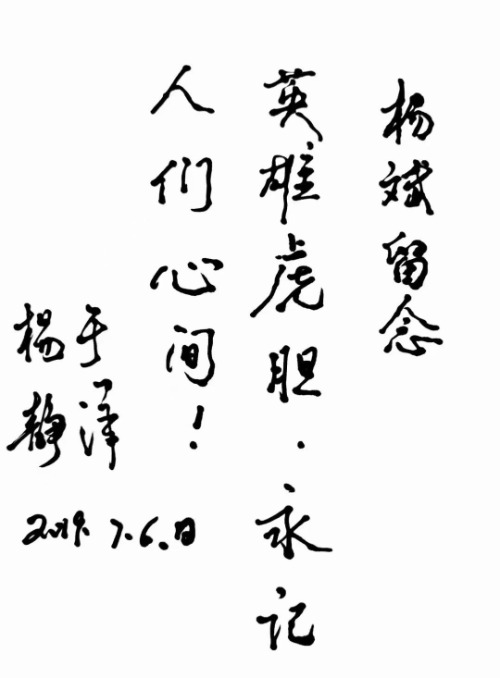 杨斌留念
英雄虎胆·永记
人们心间！
于泽
杨静
2019.7.6.日